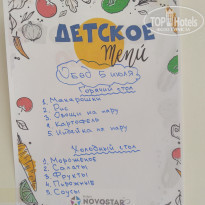 TOP HOTELS
ДЕТСКОЕ
Меnü
Обед 5 июля
Горячий стол
1. Макарошки
2. Рис
3. Овощи на пару
4. Картофель
5. Индейка на пару
Холодный стол
1. Мороженое
2. Салаты
3. Фрукты
4. Пирожные
5. Соусы
NOVOSTAR